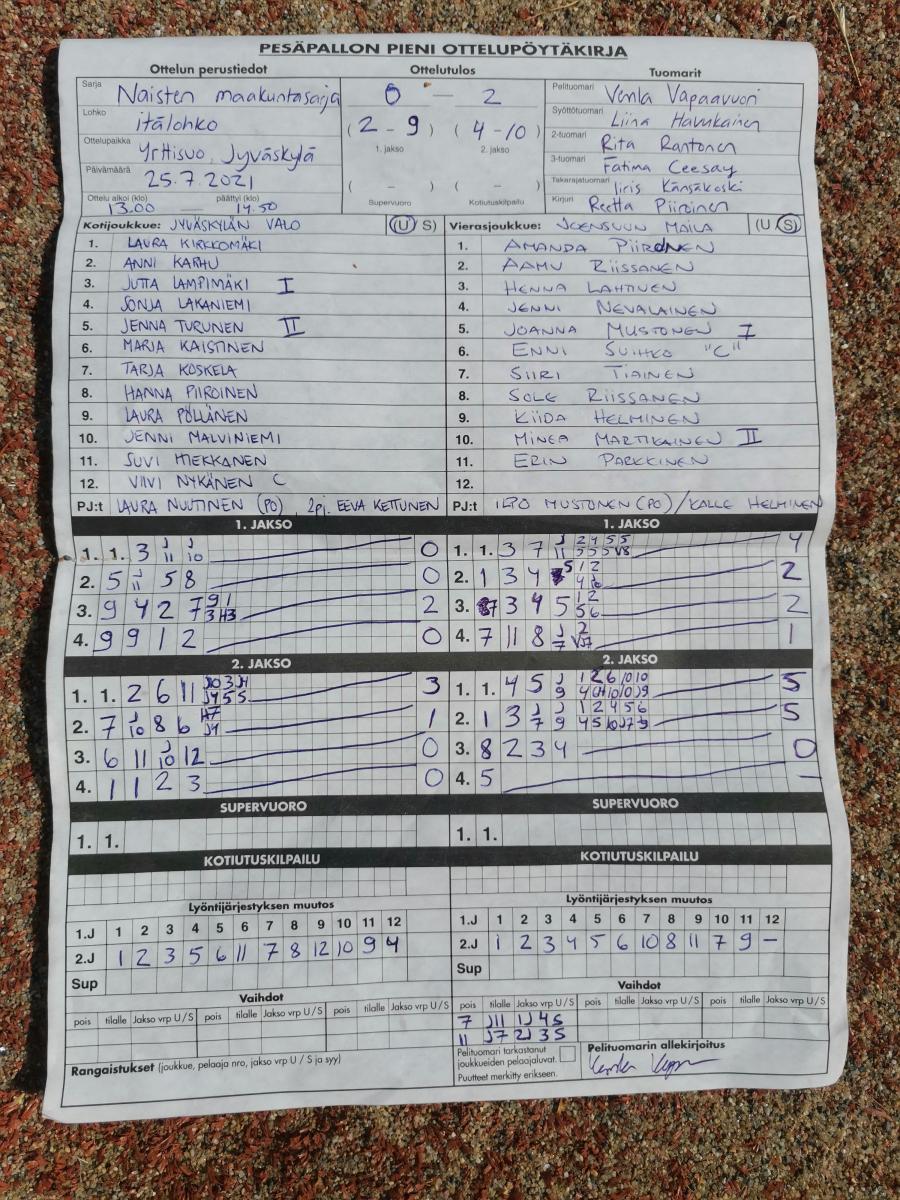 PESÄPALLON PIENI OTTELUPÖYTÄKIRJA
Ottelun perustiedot
Sarja Naisten maakuntasarja
Lohko itälohko
Ottelupaikka Yrttisuo, Jyväskylä
Päivämäärä 25.7.2021
Ottelu alkoi (klo) päättyi (klo)
13.00 — 14.50
Ottelutulos
0 — 2
(2 - 9) (4 - 10)
1. jakso 2. jakso
( - ) ( - )
Supervuoro Kotiutuskilpailu
Tuomarit
Pelituomari Venla Vapaavuori
Syöttötuomari Liina Havukainen
2-tuomari Rita Rantonen
3-tuomari Fatima Ceesay
Takarajatuomari Iiris Känsäkoski
Kirjuri Reetta Piiroinen
Kotijoukkue: JYVÄSKYLÄN VALO (U S)
1. LAURA KIRKKOMÄKI
2. ANNI KARHU
3. JUTTA LAMPIMÄKI I
4. SONJA LAKANIEMI
5. JENNA TURUNEN II
6. MARJA KAISTINEN
7. TARJA KOSKELA
8. HANNA PIIROINEN
9. LAURA PÖLLÄNEN
10. JENNI MALVINIEMI
11. SUVI HIEKKANEN
12. VIIVI NYKÄNEN C
PJ:t LAURA NUUTINEN (PO), 2pj. EEVA KETTUNEN
Vierasjoukkue: JOENSUUN MAILA (U S)
1. AMANDA PIIRONEN
2. AAMU RIISSANEN
3. HENNA LAHTINEN
4. JENNI NEVALAINEN
5. JOANNA MUSTONEN I
6. ENNI SUIHKO "C"
7. SIIRI TIAINEN
8. SOLE RIISSANEN
9. KIIDA HELMINEN
10. MINEA MARTIKAINEN II
11. ERIN PARKKINEN
12.
PJ:t ILPO MUSTONEN (PO) / KALLE HELMINEN
1. JAKSO
1. 1. 3 J11 J10 0
2. 5 J11 5 8 0
3. 9 4 2 7 91 3H3 2
4. 9 9 1 2 0
2. JAKSO
1. 1. 2 6 11 3
2. 7 J10 8 6 H7 J4 1
3. 6 11 J10 12 0
4. 1 1 2 3 0
SUPERVUORO
1. 1.
KOTIUTUSKILPAILU
1. JAKSO
1. 1. 3 7 J11 2455 4
2. 1 3 4 2
3. 3 4 5 12 56 2
4. 7 11 8 J7 2 VJ7 1
2. JAKSO
1. 1. 4 5 J9 5
2. 1 3 J7 J9 12456 5
3. 8 2 3 4 0
4. 5 —
SUPERVUORO
1. 1.
KOTIUTUSKILPAILU
Lyöntijärjestyksen muutos
1.J 1 2 3 4 5 6 7 8 9 10 11 12
2.J 1 2 3 5 6 11 7 8 12 10 9 4
Sup
Vaihdot
pois tilalle Jakso vrp U / S pois tilalle Jakso vrp U / S pois tilalle Jakso vrp U / S
Rangaistukset (joukkue, pelaaja nro, jakso vrp U / S ja syy)
Lyöntijärjestyksen muutos
1.J 1 2 3 4 5 6 7 8 9 10 11 12
2.J 1 2 3 4 5 6 10 8 11 7 9 —
Sup
Vaihdot
pois tilalle Jakso vrp U / S pois tilalle Jakso vrp U / S pois tilalle Jakso vrp U / S
7 J11 1J 4S
11 J7 2J 3S
Pelituomari tarkastanut
joukkueiden pelaajaluvat.
Puutteet merkitty erikseen.
Pelituomarin allekirjoitus